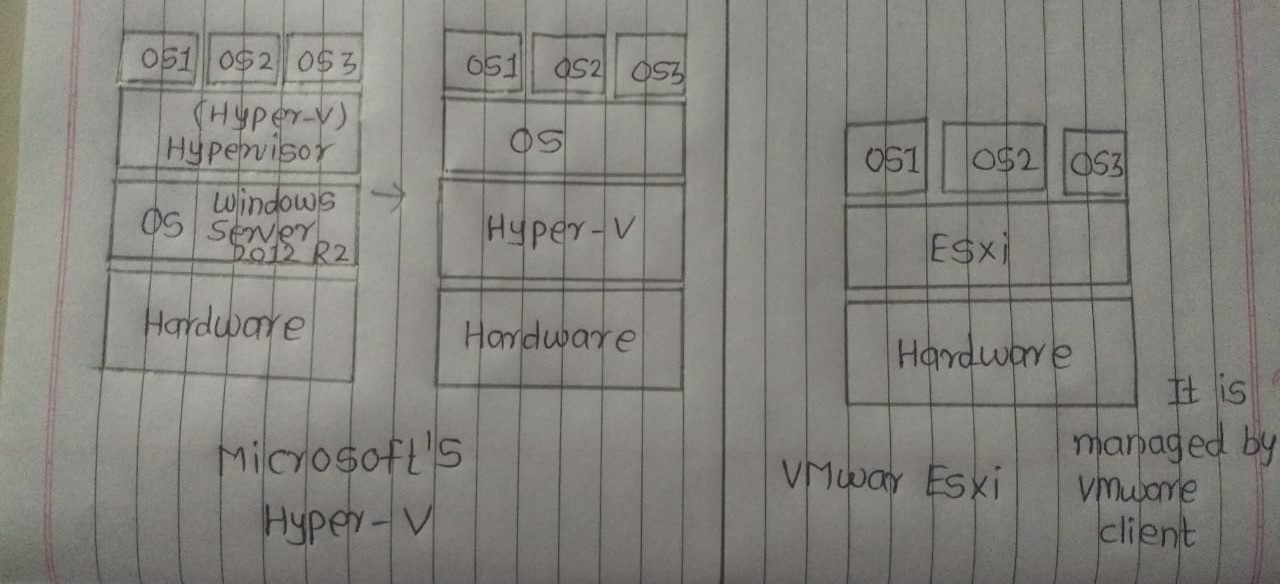 OS1 OS2 OS3
(Hyper-V)
Hypervisor
OS Windows
Server
2012 R2
Hardware
→
OS1 OS2 OS3
OS
Hyper-V
Hardware
Microsoft's
Hyper-V
OS1 OS2 OS3
ESxi
Hardware
VMwar ESxi
It is
managed by
vmware
client